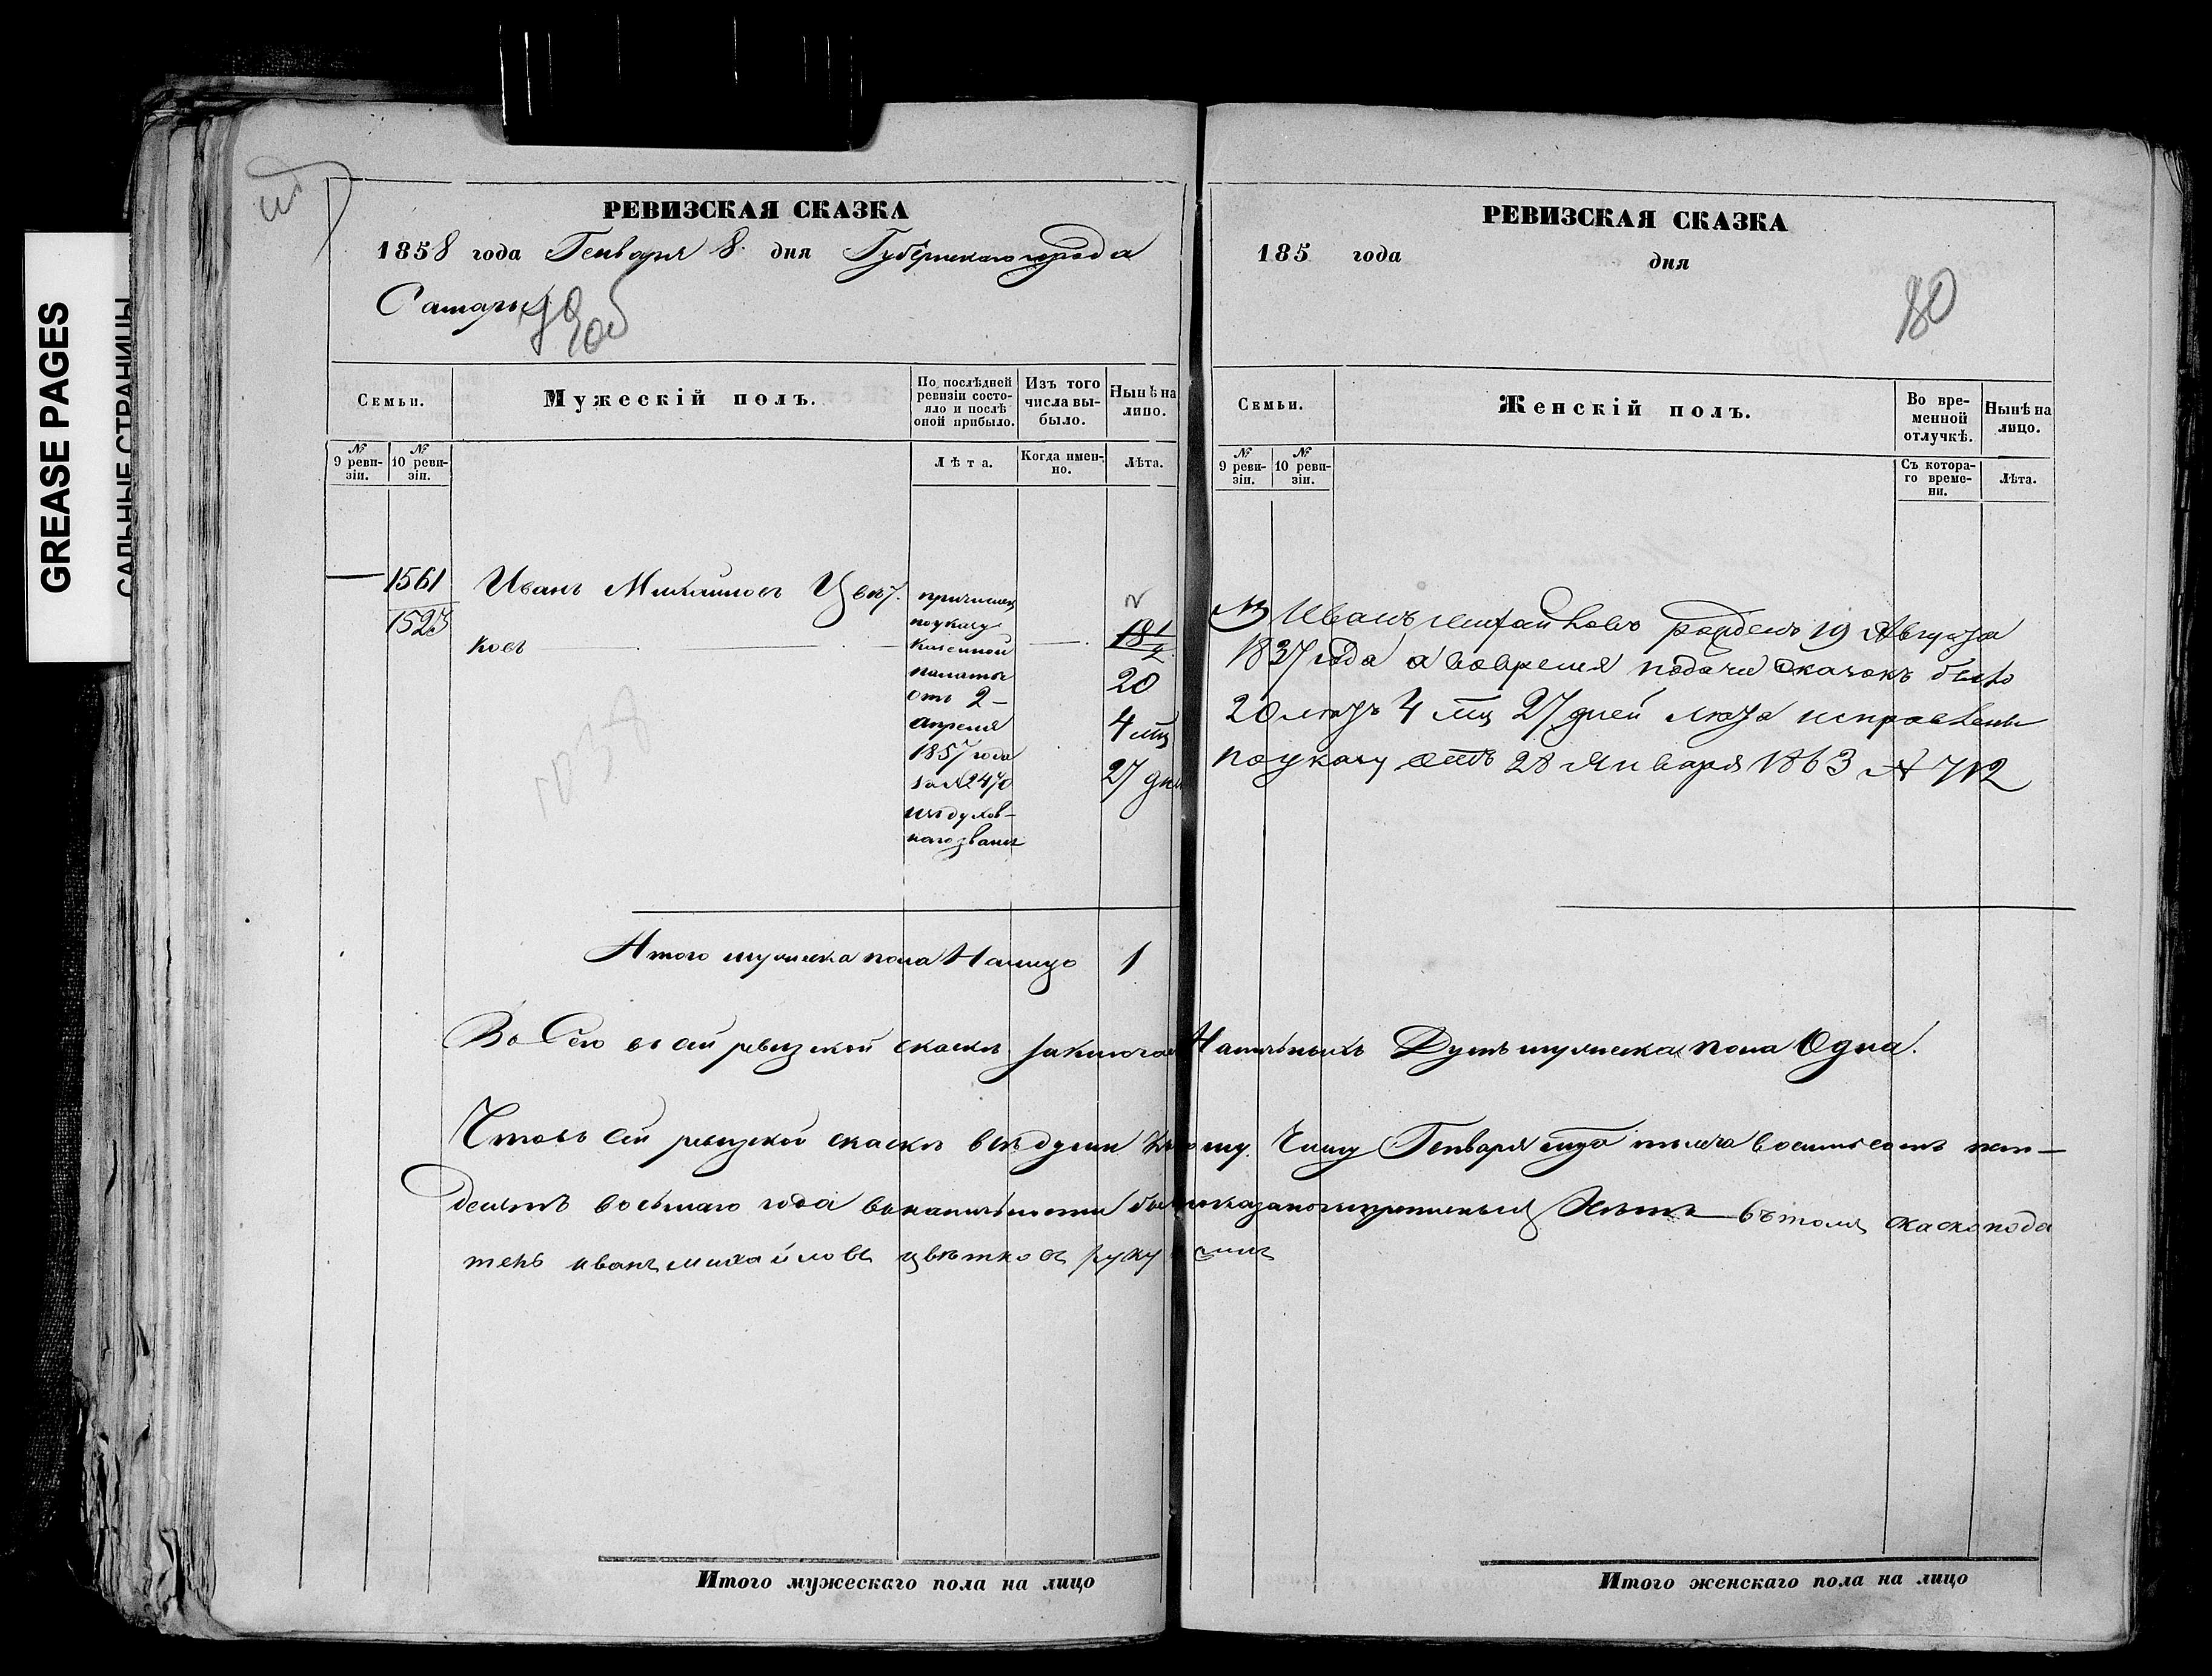 GREASE PAGES
САЛЬНЫЕ СТРАНИЦЫ
РЕВИЗСКАЯ СКАЗКА
1858 года Генваря 8 дня Губернскаго города
Самары
79об
Семьи.
Мужескій полъ.
По послѣдней ревизіи состояло и послѣ оной прибыло.
Изъ того числа выбыло.
Нынѣ на лицо.
№ 9 ревизіи.
№ 10 ревизіи.
Лѣта.
Когда именно.
Лѣта.
1561
1523
Иванъ Михайловъ Цвѣт
ковъ
причислен
по указу
Казенной
палаты
отъ 2
апреля
1857 года
за №2470
изъ духов-
наго звания
18 1/2
20
4 мц
27 дн
Итого мужеска пола Налицо 1
РЕВИЗСКАЯ СКАЗКА
185 года дня
80
Семьи.
Женскій полъ.
Во временной отлучкѣ.
Нынѣ на лицо.
№ 9 ревизіи.
№ 10 ревизіи.
Съ котораго времени.
Лѣта.
Иванъ Михайловъ рожденъ 19 Августа
1837 года а вовремя подачи сказокъ было
20 летъ 4 мц 27 дней лета исправлены
по указу отъ 28 Января 1863 № 712
Во сей ревизской сказке заключа Наличныхъ Душъ мужеска пола Одна.
Что въ сей ревизской сказкѣ всѣ души къ ому Числу Генваря тысяча восемьсотъ пять-
десятъ восьмаго года въ наличности Нѣтъ въ томъ сказко пода
тель иванъ михайловъ цвѣтковъ руку
Итого мужескаго пола на лицо
Итого женскаго пола на лицо